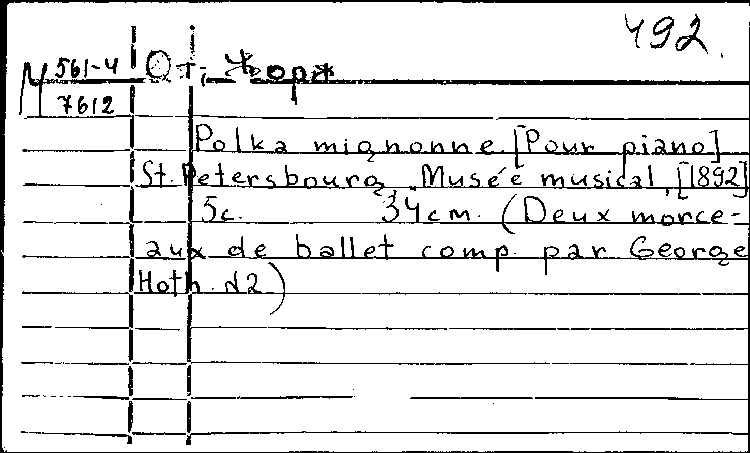 492.
М 561-4 От, Жорж
7612
Polka mignonne. [Pour piano]
St. Petersbourg, Musée musical, [1892]
5c. 34cm. (Deux morce-
aux de ballet comp. par George
Hoth. №2)